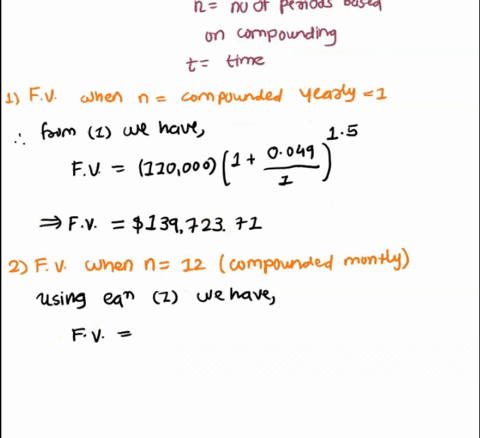 n= no of periods based
on compounding
t= time
1) F.V. when n = compounded yearly =1
∴ from (1) we have,
F.V. = (110,000) (1 + 0.049/1)^1.5
⇒ F.V. = $139,723.71
2) F.V. when n= 12 (compounded montly)
using eqⁿ (1) we have,
F.V. =